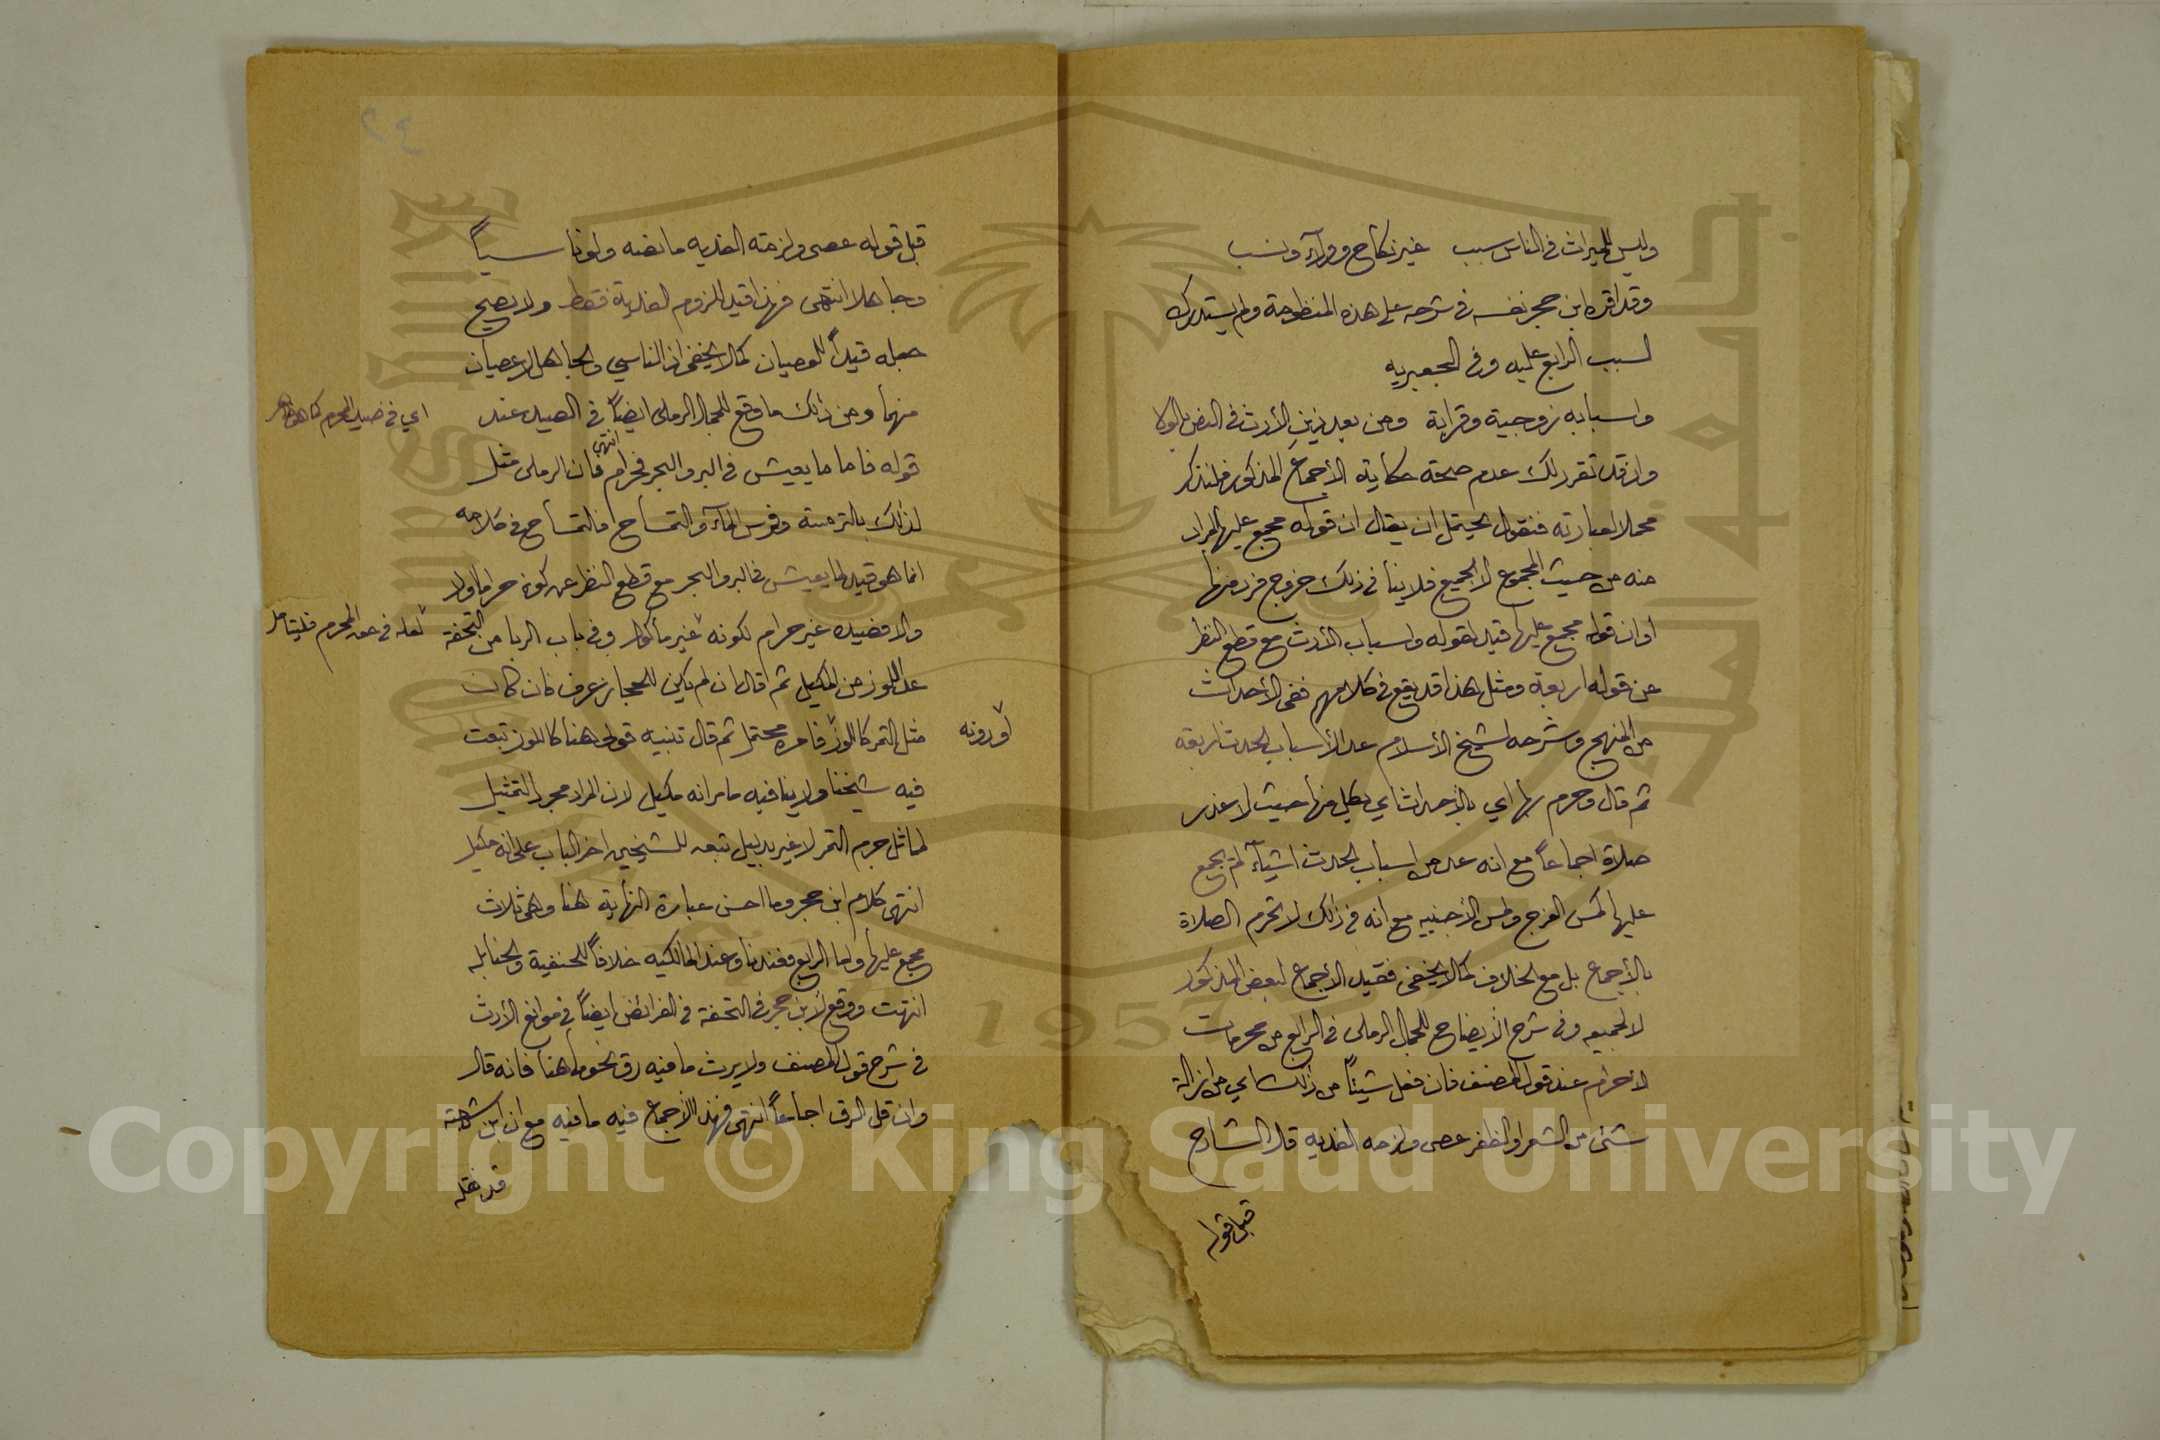 وليس للميراث في الناس سبب غير نكاح وولآء ونسب
وقد اقره ابن حجر نفسه في شرحه على هذه المنظومة ولم يستدرك
لسبب الرابع عليه وفي الجعبريه
واسبابه زوجية وقرابة ومن بعد ذين الأرث في النص بالولا
واذ قد تقرر لك عدم صحة حكاية الأجماع المذكور فلنذكر
محملا لعبارته فنقول يحتمل ان يقال ان قوله مجمع عليها المراد
منه من حيث المجموع لا الجميع فلا ينا في ذلك خروج فرد منها
أوان قوله مجمع عليها قيد لقوله واسباب الأرث مع قطع النظر
عن قوله اربعة ومثل هذا قد يقع في كلامهم ففي الأحداث
من المنهج وشرحه لشيخ الأسلام عد الأسباب للحدث اربعة
ثم قال وحرم بها اي بالأحداث اي بكل منها حيث لا عذر
صلاة اجماعاً مع انه عد من اسباب الحدث اشيآء لم يجمع
عليها كمس الفرج ولمس الأجنبيه مع انه في ذلك لا تحرم الصلاة
بالأجماع بل مع الخلاف كما لا يخفى فقيد الأجماع لبعض المذكور
لا لجميعه وفي شرح الأيضاح للجمال الرملي في الرابع من محرمات
لاحرام عند قول المصنف فان فعل شيئاً من ذلك اي من ازالة
شئ من الشعر او الظفر عصى ولزمه الفديه قال الشارح
قبل قوله
قبل قوله عصى ولزمته الفديه ما نصه ولو ناسياً
وجاهلا انتهى فهذا قيد للزوم الفدية فقط ولا يصح
جعله قيداً للعصيان كما لا يخفى اذ الناسي والجاهل لا عصيان
منهما ومن ذلك ما وقع للجمال الرملي ايضاً في الصيد عند
قوله فاما ما يعيش في البر والبحر فحرام انتهى فان الرملي مثل
لذلك بالترسة وفرس المآء والتمساح فالتمساح في كلامه
انما هو قيد لما يعيش في البر والبحر مع قطع النظر عن كونه حراما ولا
والا فصيده غير حرام لكونه غير مأكول وفي باب الربا من التحفة
عد اللوز من المكيل ثم قال ان لم يكن للحجاز عرف فان كان
مثل التمر كاللوز فامره محتمل ثم قال تنبيه قولي هنا كاللوز تبعت
فيه شيخنا ولا ينا فيه ما مر انه مكيل لان المراد مجرد التمثيل
لماثل جرم التمر لا غير بدليل تبعه للشيخين اخر الباب على انه مكيل
انتهى كلام ابن حجر وما احسن عبارة النهاية هنا وهي ثلاث
مجمع عليها واما الرابع فعندنا وعند المالكيه خلافاً للحنفية والحنابله
انتهت ووقع لأبن حجر في التحفة في الفرائض ايضاً في موانع الأرث
في شرح قول المصنف ولا يرث ما فيه رق نحو ما هنا فانه قال
وان قل الرق اجماعاً انتهى فهذا الأجماع فيه ما فيه مع ان ابن
قد نقله
اي في صيد المحرم كما هو ظاهر
لعله في حق المحرم فليتامل
أو دونه